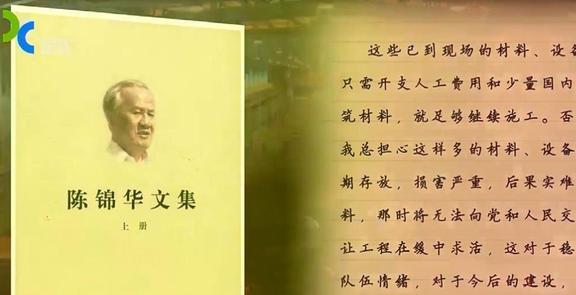 陈锦华文集
上册
这些已到现场的材料、设备
只需开支人工费用和少量国内
筑材料，就足够继续施工。否
我总担心这样多的材料、设备
期存放，损害严重，后果实难
料，那时将无法向党和人民交
让工程在缓中求活，这对于稳
队伍情绪，对于今后的建设，